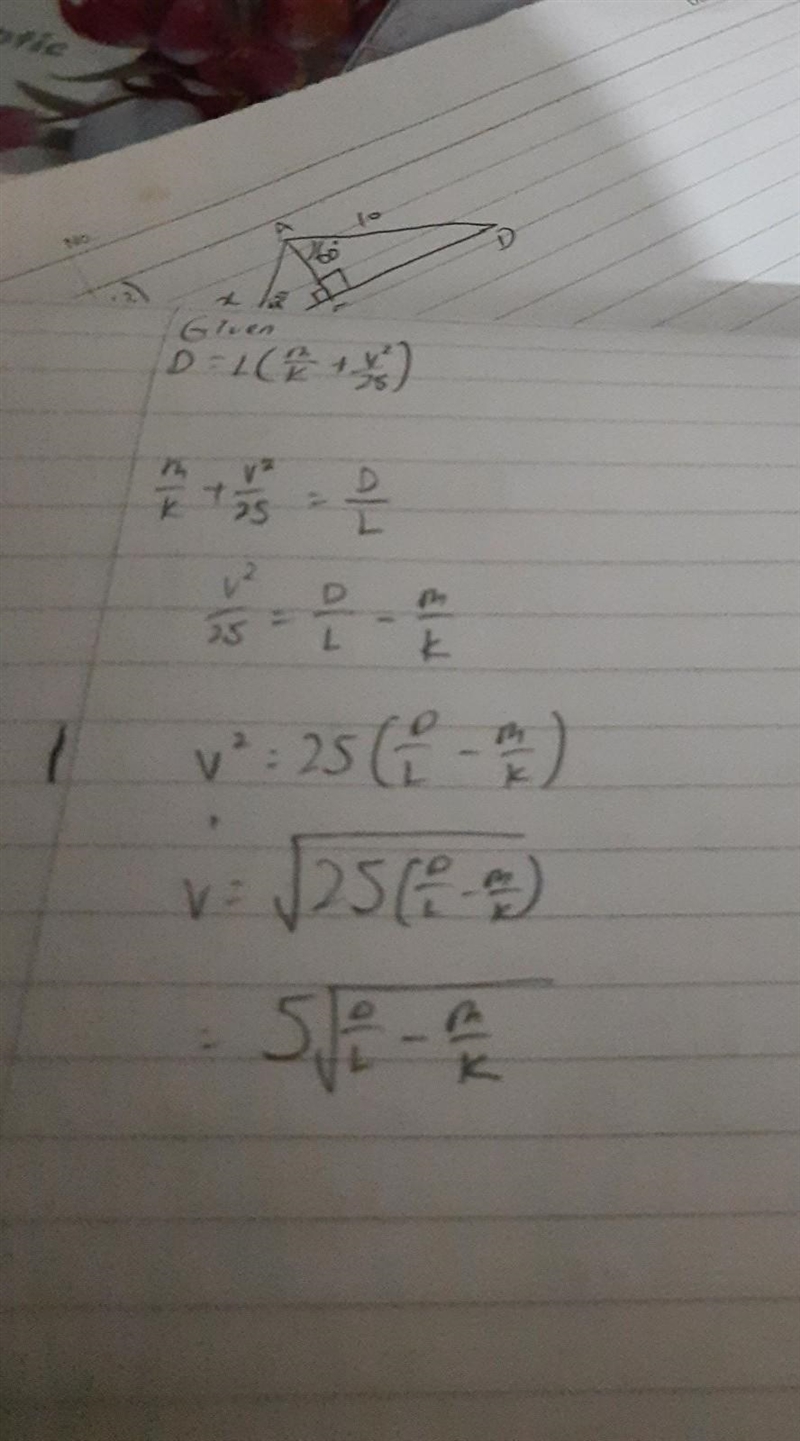 otic
No
A 10 D
60°
x
Given
D = L(m/K + v²/25)
m/K + v²/25 = D/L
v²/25 = D/L - m/K
1 v² = 25(D/L - m/K)
v = √25(D/L - m/K)
= 5√D/L - m/K